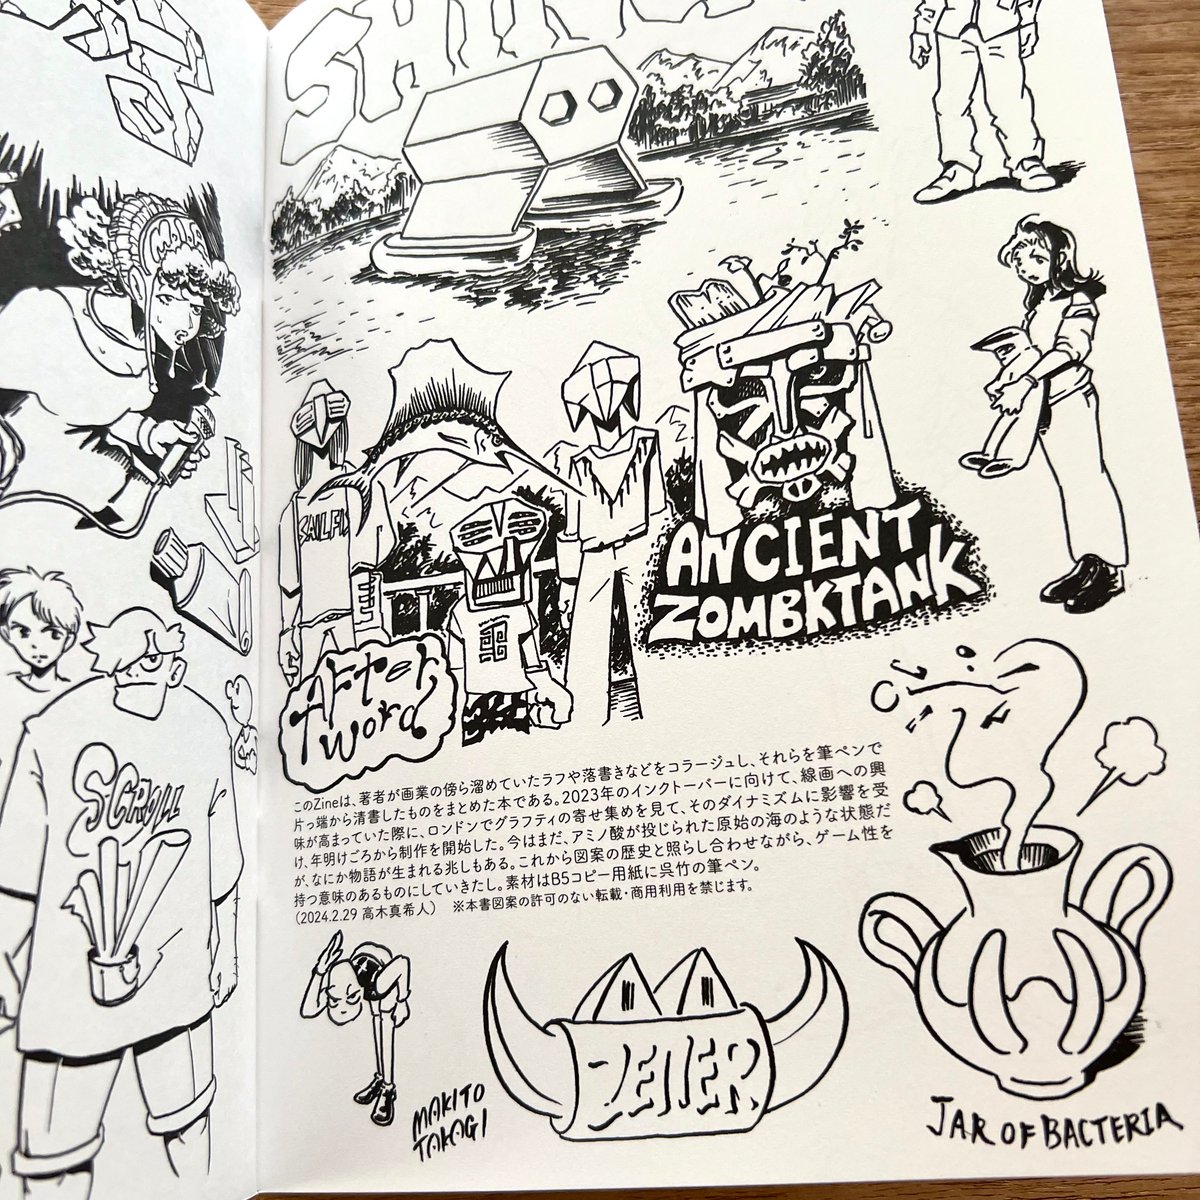 SAILFIS
ANCIENT
ZOMBKTANK
AFTER
WORD
SCROLL
このZineは、著者が画業の傍ら溜めていたラフや落書きなどをコラージュし、それらを筆ペンで
片っ端から清書したものをまとめた本である。2023年のインクトーバーに向けて、線画への興
味が高まっていた際に、ロンドンでグラフティの寄せ集めを見て、そのダイナミズムに影響を受
け、年明けごろから制作を開始した。今はまだ、アミノ酸が投じられた原始の海のような状態だ
が、なにか物語が生まれる兆しもある。これから図案の歴史と照らし合わせながら、ゲーム性を
持つ意味のあるものにしていきたし。素材はB5コピー用紙に呉竹の筆ペン。
(2024.2.29 高木真希人) ※本書図案の許可のない転載・商用利用を禁じます。
MAKITO
TAKAGI
JAR OF BACTERIA